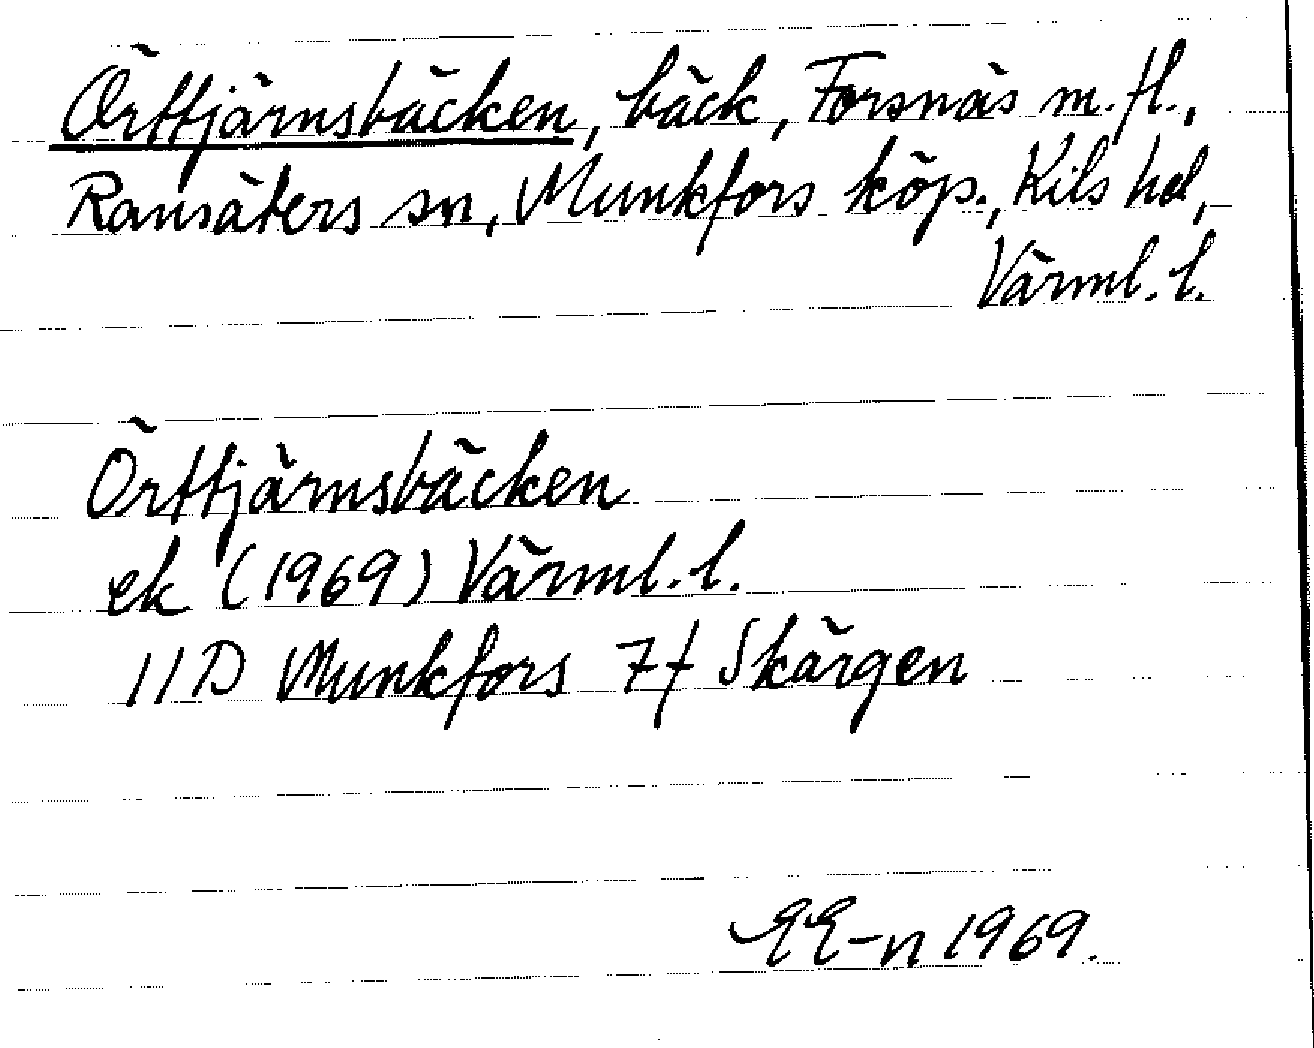 Örttjärnsbäcken, bäck, Forsnäs m. fl.,
Ransäters sn, Munkfors köp., Kils hd,
Värml. l.
Örttjärnsbäcken
ek (1969) Värml. l.
11D Munkfors 7f Skärgen
EE-n 1969.